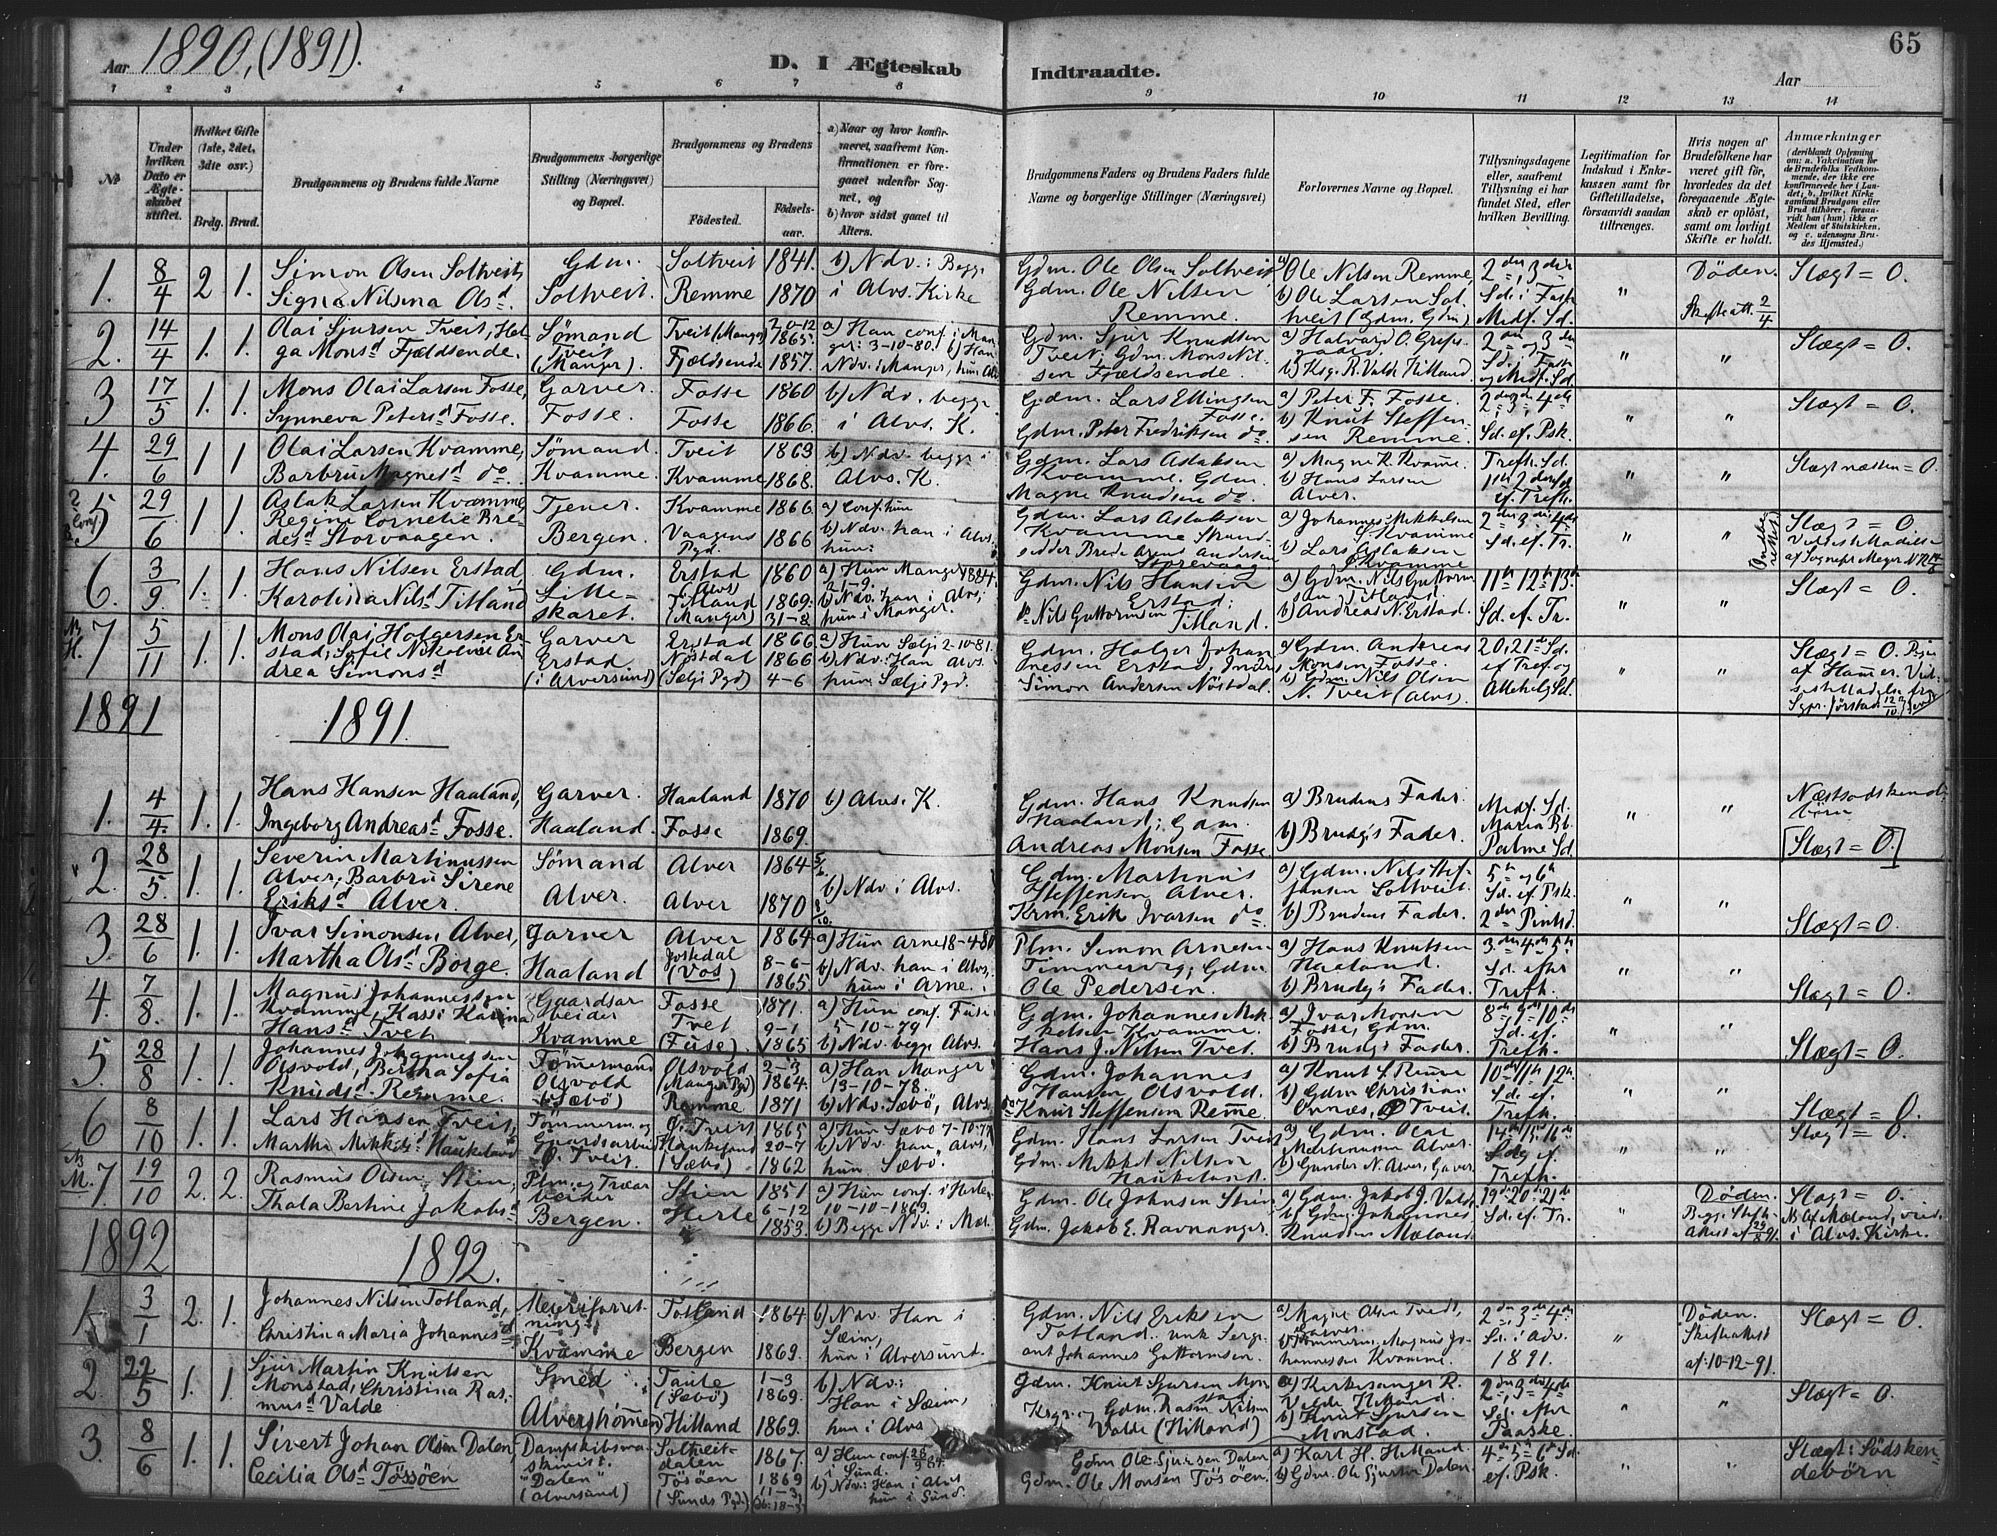 1890, (1891).
65
Aar
D. I Ægteskab
Indtraadte.
Aar
1 2 3 4 5 6 7 8 9 10 11 12 13 14
№
Under hvilken Dato er Ægteskabet stiftet.
Hvilket Gifte (1ste, 2det, 3die osv.)
Brdg. Brud.
Brudgommens og Brudens fulde Navne
Brudgommens borgerlige Stilling (Næringsvei) og Bopæl.
Brudgommens og Brudens
Fødested.
Fødsels-aar.
a) Naar og hvor konfirmeret, saafremt Konfirmationen er foregaaet udenfor Sognet, og
b) hvor sidst gaaet til Alters.
Brudgommens Faders og Brudens Faders fulde Navne og borgerlige Stillinger (Næringsvei)
Forlovernes Navne og Bopæl.
Tillysningsdagene eller, saafremt Tillysning ei har fundet Sted, efter hvilken Bevilling.
Legitimation for Indskud i Enkekassen samt for Giftetilladelse, forsaavidt saadan tiltrænges.
Hvis nogen af Brudefolkene har været gift før, hvorledes da det foregaaende Ægteskab er opløst, samt om lovligt Skifte er holdt.
Anmærkninger
(deriblandt Oplysning om: a. Vakcination for de Brudefolks Vedkommende, der ikke ere konfirmerede her i Landet; b. hvilket Kirkesamfund Brudgom eller Brud tilhører, forsaavidt han (hun) ikke er Medlem af Statskirken, og c. udensogns Brudes Hjemsted.)
1. 8/4 2 1. Simon Olsen Soltveit, Signa Nilsina Olsd. Gdm. Soltveit. Soltveit Remme 1841. 1870 b) Ndv.: Begge i Alvs. Kirke
Gdm. Ole Olsen Soltveit Gdm. Ole Nilsen Remme. a) Ole Nilsen Remme, b) Ole Larsen Soltveit (Gdm. Gdm) 2den, 3die Sd. i Faste Midf. Sd. " Døden. Skifteatt. 2/4 Slægt = 0.
2. 14/4 1. 1. Olai Sjursen Tveit, Helga Monsd Fjældsende. Sømand Tveit (Manger). Tveit (Manger) Fjældsende 20-12 1865. 1857. a) Han conf. i Manger: 3-10-80. b) Han Ndv. i Manger, hun Alvs
Gdm. Sjur Knudsen Tveit. Gdm. Mons Nilsen Fjældsende. a) Halvard O. b) Ksg. R. Valde Hilland. 2den og 3die Sd. i Faste og Midf. Sd. " " Slægt = 0.
3 17/5 1. 1. Mons Olai Larsen Fosse, Synneva Petersd Fosse. Garver. Fosse. Fosse Fosse 1860 1866. b) Ndv. begge i Alvs. K.
Gdm. Lars Ellingsen Fosse. Gdm. Peter Fredriksen do a) Peter F. Fosse. b) Knut Steffensen Remme. 2den 3die 4de Sd. ef. Psk. " " Slægt = 0.
4. 29/6 1 1 Olai Larsen Kvamme, Barbru Magnesd do Sømand. Kvamme. Tveit Kvamme 1863 1868. b) Ndv. begge i Alvs. K.
Gdm. Lars Aslaksen Kvamme. Gdm. Magne Knudsen do. a) Magne K. Kvamme. b) Hans Larsen Alver. Trefh. Sd. 1ste, 2den Sd ef. Trefh. " " Slægt næsten = 0.
5 29/6 1 1 Aslak Larsen Kvamme, Regine Cornelie Bredesd Storvaagen. Tjener. Bergen. Kvamme Vaagens Pgd. 1866 1866 a) Conf. hun b) Ndv. han i Alvs: hun:
Gdm. Lars Aslaksen Kvamme Strandsidder Brede Arent Andersen Storevaagen a) Johannes Mikkelsen Kvamme b) Lars Aslaksen Kvamme 2den 3die 4de Sd. ef. Tr. " " Slægt = 0.
6. 3/9 1. 1. Hans Nilsen Erstad, Karolina Nilsd Titland Gdm. Litleskaret. Erstad (Alvs) Titland (Manger) 1860 1869: 31-8 a) Hun Manger 1884. 21-9. b) Ndv. han i Alvs; hun i Manger.
Gdm. Nils Hansen Erstad; Nils Guttormsen Titland. a) Gdm. Nils Guttormsen Titland. b) Andreas N. Erstad. 11te 12te 13de Sd. ef. Tr. " " Slægt = 0.
7 5/11 1. 1. Mons Olai Holgersen Erstad; Sofie Nikoline Andrea Simonsd Garver Erstad. (i Alversund) Erstad Nøstdal (Selje Pgd) 1866. 1866 4-6 a) Hun Sælje 2-10-81. b) Ndv: Han Alvs. hun: Sælje Pgd.
Gdm. Holger Johannessen Erstad, Inders Simon Andersen Nøstdal. a) Gdm. Andreas Monsen Fosse. b) Gdm. Nils Olsen N. Tveit (Alvs). 20, 21de Sd. ef Tref og Allehelg. Sd. " " Slægt = 0.
1891 1891.
1. 4/4. 1. 1. Hans Hansen Haaland, Ingeborg Andreasd Fosse. Garver. Haaland. Haaland Fosse 1870 1869. b) Alvs. K.
Gdm. Hans Knudsen Haaland; Gdm. Andreas Monsen Fosse a) Brudens Fader. b) Brudg's Fader. Midf. Sd. Maria Bb. Palme Sd. " " Næstsødskendebørn [Slægt = 0.]
2. 28/5 1. 1. Severin Martinussen Alver; Barbru Sirene Eriksd Alver. Sømand Alver Alver Alver 1864 1870 b) Ndv. i Alvs.
Gdm. Martinus Steffensen Alver. Krm. Erik Ivarsen do a) Gdm. Nils Steffensen Soltveit. b) Brudens Fader. 5te og 6te Sd. ef. Psk. 2den Pintsd. " " Slægt = 0.
3. 28/6 1. 1. Ivar Simonsen Alver, Martha Olsd Borge. Garver Haaland Alver (Vos) 1864 8-6- 1865. a) Hun Arne 18-4-80 b) Ndv. han i Alvs. hun i Arne.
Plm. Simon Arnesen Timmervig; Gdm. Ole Pedersen. a) Hans Knutsen Haaland. b) Brudg's Fader. 3die 4de 5te Sd. efter Trefh. " " Slægt = 0.
4. 7/8. 1. 1. Magnus Johannessen Kvamme, Kassi Karina Hansd Tvet Gaardsarbeider Kvamme Fosse Tvet (Fuse). 1871. 9-1 1865 a) Hun conf. Fuse 5-10-79 b) Ndv. begge Alvs.
Gdm. Johannes Mikkelsen Kvamme. Hans J. Nilsen Tvet. a) Ivar Monsen Fosse, Gdm. b) Brudg's Fader. 8de 9de 10de Sd. ef. Trefh. " " Slægt = 0.
5. 28/8 1. 1. Johannes Johannessen Olsvold, Bertha Sofia Knudsd Remme. Tømmermand Olsvold (Sæbø) Olsvold (Manger Pgd) Remme 2-3 1864. 1871 a) Han Manger 13-10-78. b) Ndv: Sæbø, Alvs
Gdm. Johannes Hansen Olsvold. Knut Steffensen Remme a) Knut S. Remme b) Gdm Christian Ø Tveit. 10de 11te 12te Sd. ef. Trefh. " " Slægt = 0.
6 8/10 1. 1. Lars Hansen Tveit, Martha Mikkelsd Haukeland Tømmerm. og Gaardsarbeid Ø. Tveit. Ø. Tveit Haukeland (Sæbø) 1865 20-7 1862 a) Hun Sæbø 7-10-77 b) Ndv. han Alvs, hun Sæbø.
Gdm. Hans Larsen Tveit Gdm. Mikkel Nilsen Haukeland. a) Gdm. Olai Martinussen Alver. b) Gunder N. Alver, Garver. 14de 15de 16de Sdg ef. Trefh. " " Slægt = 0.
7 19/10 2. 2. Rasmus Olsen Stien, Thala Bertine Jakobsd Plm. og Træarbeider Bergen. Stien Herle 1851 6-12 1853. a) Hun conf. i Herle 10-10-1869. b) Begge Ndv. i Mæl.
Gdm. Ole Johnsen Stien Gdm. Jakob E. Ravnanger. a) Gdm. Jakob J. b) Gdm. Johannes Knudsen Mæland. 19de 20de 21de Sd. ef. Tr. " Døden. Slægt = 0. i Alvs. Kirke.
1892 1892.
1 3/1 2. 1. Johannes Nilsen Totland, Christina Maria Johannesd Meieriforretning, Kvamme Totland Bergen 1864 1869. b) Ndv. Han i Sæim, hun i Alversund.
Gdm. Nils Eriksen Totland. Sergeant Johannes Guttormsen. a) Magne Olsen Tvedt, Garver b) Tømmerm. Magnus Johannessen Kvamme. 2den, 3die 4de Sd. i Adv. 1891. " Døden. Skifteattest af: 10-12-91. Slægt = 0.
2. 22/5 1. 1. Sjur Martin Knutsen Monstad, Christina Rasmusd Valde Smed Alverstrømmen Taule (Sæbø) Hilland 1-3 1869. 1869. b) Ndv: Han i Sæim, hun i Alvs
Gdm. Knut Sjursen Monstad Ksgr. og Gdm. Rasm. Nilsen Valde (Hilland) a) Kirkesanger R. Valde Hilland b) Knut Sjursen Monstad. 2den, 3die 4de Sd. efter Paaske. " " Slægt = 0.
3. 8/6 1. 1. Sivert Johan Olsen Dalen, Cecilia Olsd Tössöen Dampskibsmaskinist. "Dalen" (Alversund) Soltveitdalen Tösöen (Sunds Pgd.) 1867. 1869 11-3 a) Hun conf. i Sund. b) Ndv: Han i Alvs hun i Sund.
Gdm Ole Sjursen Dalen Gdm. Ole Monsen Tösöen. a) Karl H. Hilland. b) Gdm. Ole Sjursen Dalen. 4de 5te 6te Sd. ef. Psk. " " Slægt: Södskendebörn